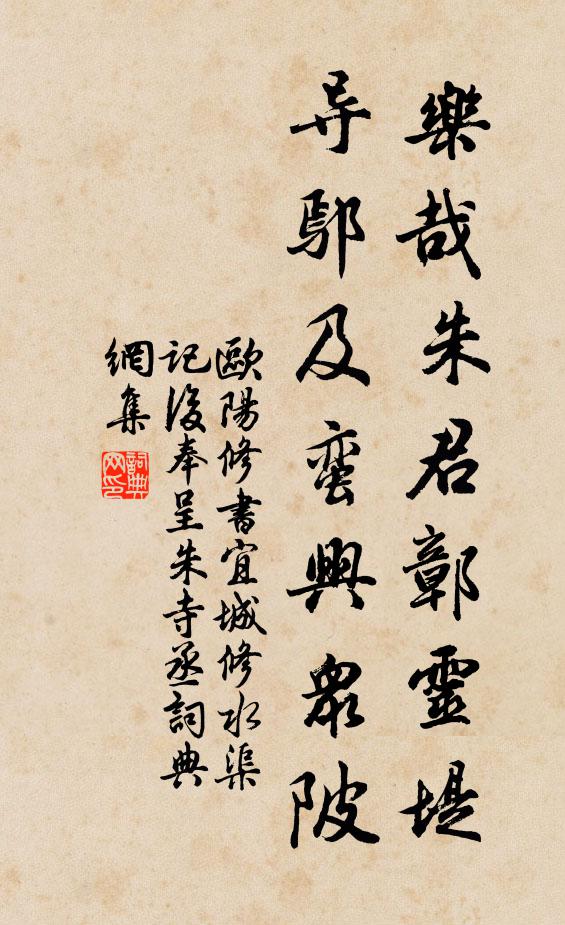 樂哉朱君鄣靈堤
导鄢及蛮興眾陂
歐陽修書宜城修水渠
記後奉呈朱寺丞詞典
網集
詞典
网印